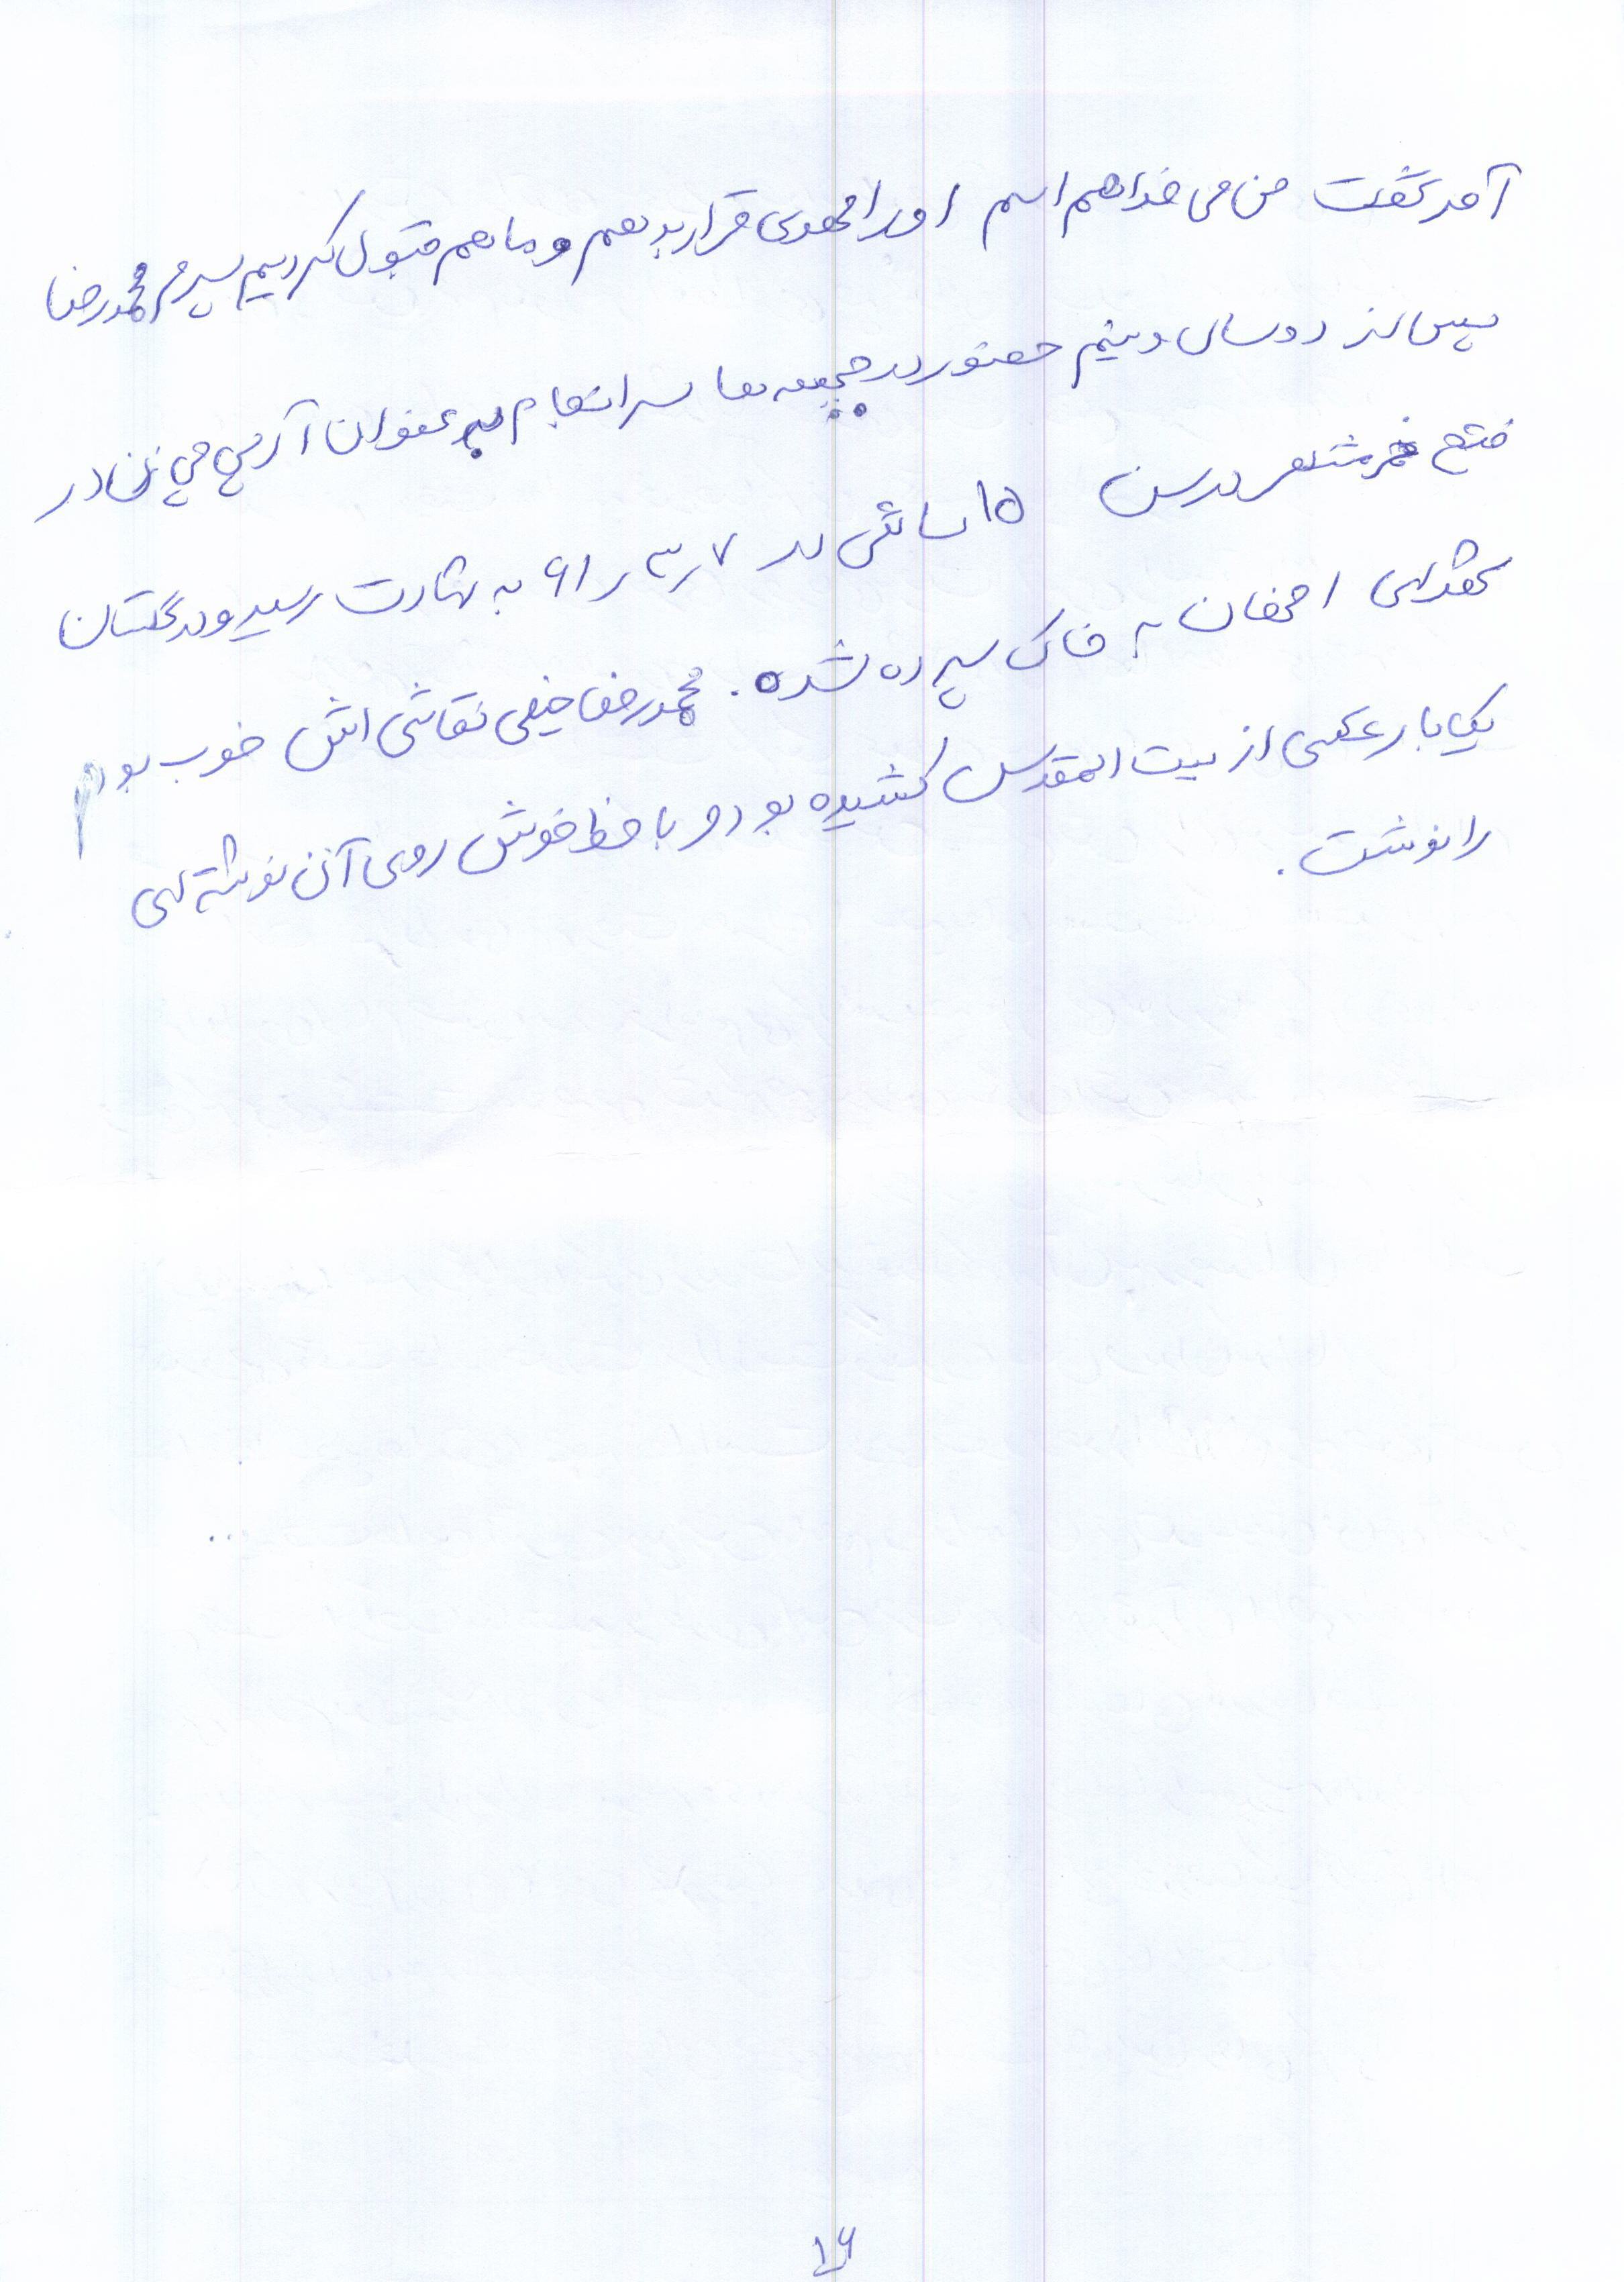 آمد گفت من می خواهم اسم او را مهدی قرار بدهم و ما هم قبول کردیم پسرم محمدرضا
پس از دو سال و نیم حضور در جبهه ها سرانجام به عنوان آرپی جی زن در
فتح خرمشهر در سن ۱۵ سالگی در ۶۱/۳/۷ به شهادت رسید و در گلستان
شهدای اصفهان به خاک سپرده شده. محمدرضا خیلی نقاشی اش خوب بود
یک بار عکسی از بیت المقدس کشیده بود و با خط خوش روی آن نوشته ای
را نوشت.
۱۶